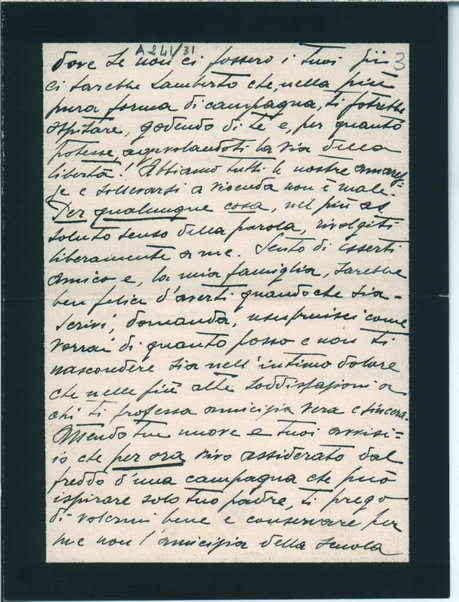 A241/31
3
dove se non ci fossero i tuoi fii
ci sarebbe Lamberto che, nella più
pura forma di campagna, ti potrebbe
ospitare, godendo di te e, per quanto
potesse agevolandoti la via della
libertà! Abbiamo tutti le nostre amarez-
ze e sollevarsi a vicenda non è male.
Per qualunque cosa, nel più as
soluto senso della parola, rivolgiti
liberamente a me. Sento di esserti
amico e, la mia famiglia, sarebbe
ben felice d'averti quando che sia.
Scrivi, domanda, usufruisci come
vorrai di quanto posso e non ti
nascondere sia nell'intimo dolore
che nelle più alte soddisfazioni a
chi ti professa amicizia vera e sincera.
Attendo tue nuove e tuoi avvisi-
io che per ora vivo assiderato dal
freddo d'una campagna che può
ispirare solo tuo padre, ti prego
di volermi bene e conservare per
me non l'amicizia della scuola